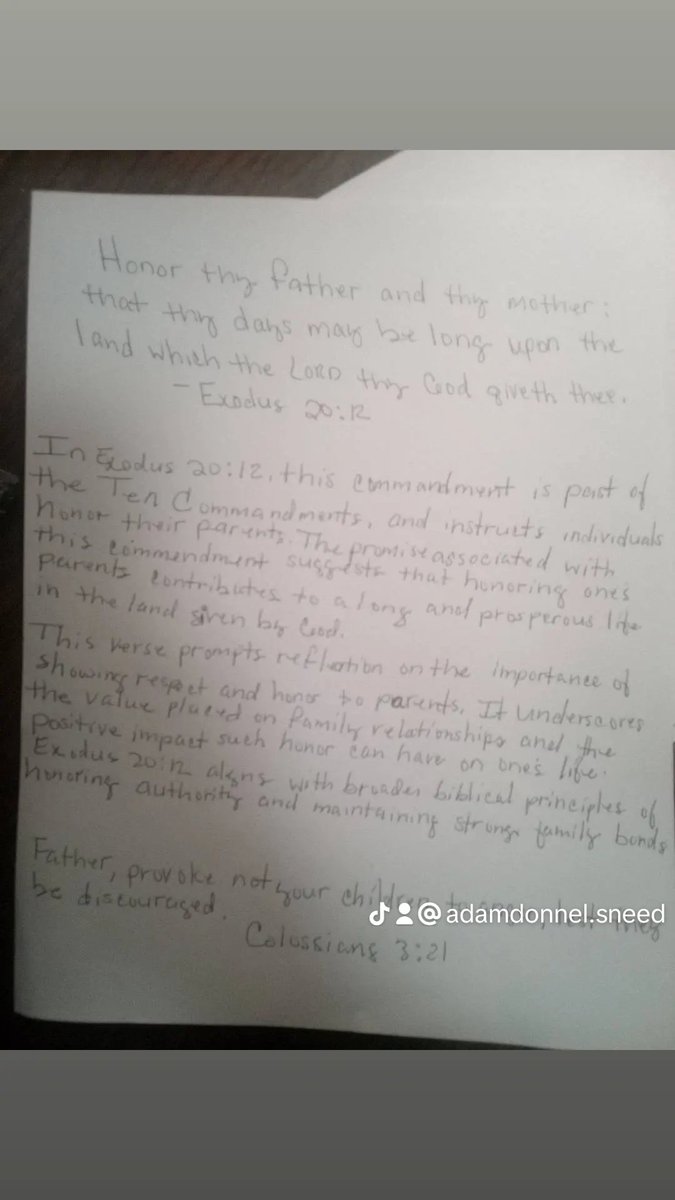 Honor thy father and thy mother:
that thy days may be long upon the
land which the LORD thy God giveth thee.
- Exodus 20:12
In Exodus 20:12, this commandment is part of
the Ten Commandments, and instructs individuals
honor their parents. The promise associated with
this commendment suggests that honoring one's
parents contributes to a long and prosperous life
in the land given by God.
This verse prompts reflection on the importance of
showing respect and honor to parents. It underscores
the value placed on family relationships and the
positive impact such honor can have on one's life.
Exodus 20:12 aligns with broader biblical principles of
honoring authority and maintaining strong family bonds
Father, provoke not your children to they
be discouraged.
Colossians 3:21
@adamdonnel.sneed